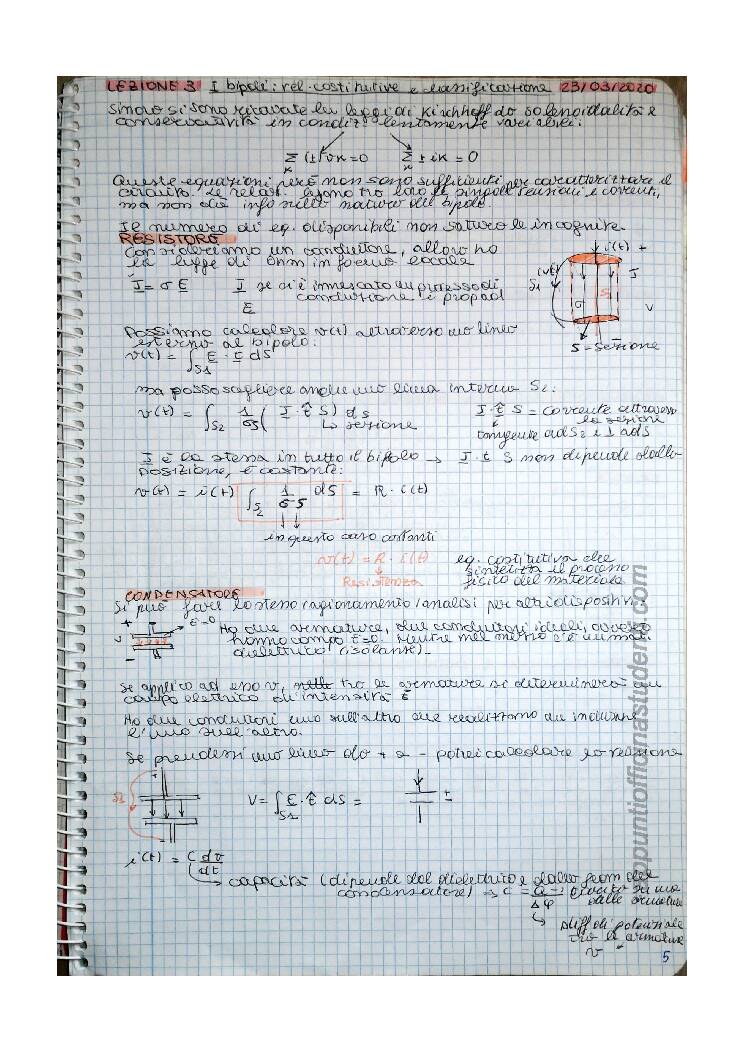 LEZIONE 3 I bipoli: rel. costitutive e classificazione 23/03/2020
Sinora si sono ricavate le leggi di Kirchhoff da solenoidalità e
conservatività in condiz. lentamente variabili.
Σ (±) vk = 0 Σ ± ik = 0
k k
Queste equazioni però non sono sufficienti per caratterizzare il
circuito. Le relaz. legano tra loro le singole tensioni e correnti,
ma non dà info sulla natura del bipolo.
Il numero di eq. disponibili non satura le incognite.
RESISTORE
Consideriamo un conduttore, allora ho
la legge di Ohm in forma locale
i(t) +
J = σ E J se si è innescato un processo di
conduzione è prop ad
E
S1
J
v
σ
S = Sezione
Possiamo calcolare v(t) attraverso una linea
esterna al bipolo:
v(t) = ∫S1 E · t ds
ma posso scegliere anche una linea interna S2:
v(t) = ∫S2 1/σS ( J · t̂ S) ds
↳ sezione
J · t̂ S = corrente attraverso
la sezione
tangente ad S2 e ⊥ ad S
J è la stessa in tutto il bipolo → J · t S non dipende dalla
posizione, è costante:
v(t) = i(t) ∫S2 1/σS ds = R · i(t)
in questo caso costanti
v(t) = R · i(t)
Resistenza
eq. costitutiva che
sintetizza il processo
fisico del materiale
CONDENSATORE
Si può fare lo stesso ragionamento/analisi per altri dispositivi:
+ E=0
v
-
Ho due armature, due conduttori ideali, ovvero
hanno campo E=0. Mentre nel mezzo c'è un mat.
dielettrico (isolante).
Se applico ad esso v, tra le armature si determinerà un
campo elettrico di intensità E
Ho due conduttori uno sull'altro che realizzano un induzione
l'uno sull'altro.
Se prendessi una linea da + a - potrei calcolare la tensione
S1
V = ∫S1 E · t̂ ds =
±
i(t) = C dv/dt
↳ capacità (dipende dal dielettrico e dalla geom del
condensatore) → C = Q/Δφ → carica su una
delle armature
↳ diff di potenziale
tra le armature
v
appuntiofficinastudenti.com
5